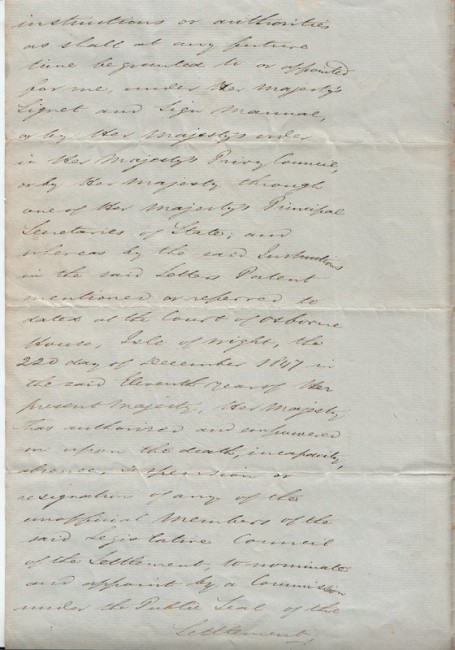 instructions or authorities
as shall at any future
time be granted to or appointed
for me, under Her Majesty's
Signet and Sign Manual,
or by Her Majesty's order
in Her Majesty's Privy Council,
or by Her Majesty through
one of Her Majesty's Principal
Secretaries of State; and
whereas by the said Instructions
in the said Letters Patent
mentioned or referred to
dated at the Court of Osborne
House, Isle of Wight, the
22d day of December 1847 in
the said Eleventh year of Her
present Majesty, Her Majesty
has authorized and empowered
upon the death, incapacity,
absence suspension or
resignation of any of the
unofficial Members of the
said Legislative Council
of the Settlement, to nominate
and appoint by a Commission
under the Public Seal of the
Settlement,